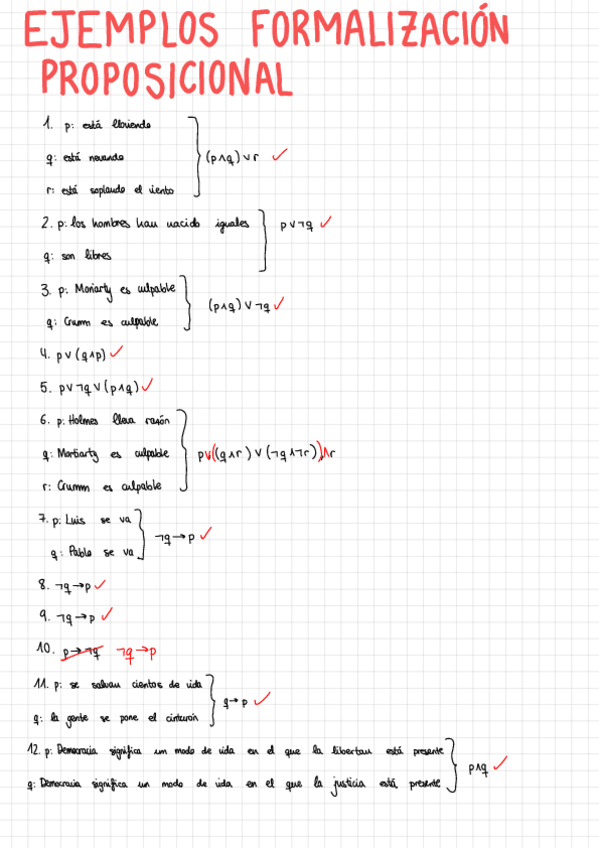 EJEMPLOS FORMALIZACIÓN
PROPOSICIONAL
1. p: está lloviendo
q: está nevando
(p∧q) ∨ r ✓
r: está soplando el viento
2. p: los hombres han nacido iguales
p ∨ ¬q ✓
q: son libres
3. p: Moriarty es culpable
(p∧q) ∨ ¬q ✓
q: Crumm es culpable
4. p ∨ (q∧p) ✓
5. p ∨ ¬q ∨ (p∧q) ✓
6. p: Holmes lleva razón
q: Mortiarty es culpable
p∨((q∧r) ∨ (¬q∧¬r))∧r
r: Crumm es culpable
7. p: Luis se va
¬q → p ✓
q: Pablo se va
8. ¬q → p ✓
9. ¬q → p ✓
10. p → ¬q ¬q → p
11. p: se salvan cientos de vida
q → p ✓
q: la gente se pone el cinturón
12. p: Democracia significa um modo de vida en el que la libertau está presente
p∧q ✓
q: Democracia significa un modo de vida en el que la justicia está presente